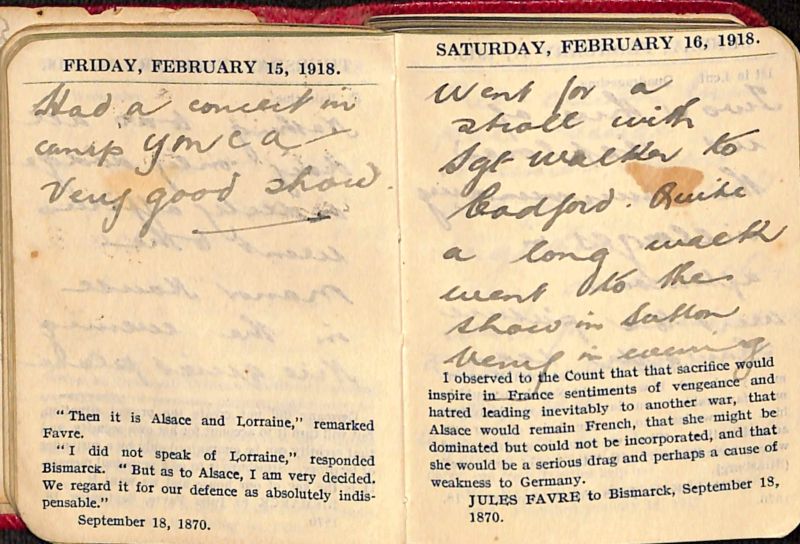 FRIDAY, FEBRUARY 15, 1918.
Had a concert in
camp YMCA
Very good show.
"Then it is Alsace and Lorraine," remarked
Favre.
"I did not speak of Lorraine," responded
Bismarck. "But as to Alsace, I am very decided.
We regard it for our defence as absolutely indis-
pensable."
September 18, 1870.
SATURDAY, FEBRUARY 16, 1918.
Went for a
stroll with
Sgt Walker to
Codford. Quite
a long walk
went to the
show in Sutton
Veny in evening
I observed to the Count that that sacrifice would
inspire in France sentiments of vengeance and
hatred leading inevitably to another war, that
Alsace would remain French, that she might be
dominated but could not be incorporated, and that
she would be a serious drag and perhaps a cause of
weakness to Germany.
JULES FAVRE to Bismarck, September 18,
1870.